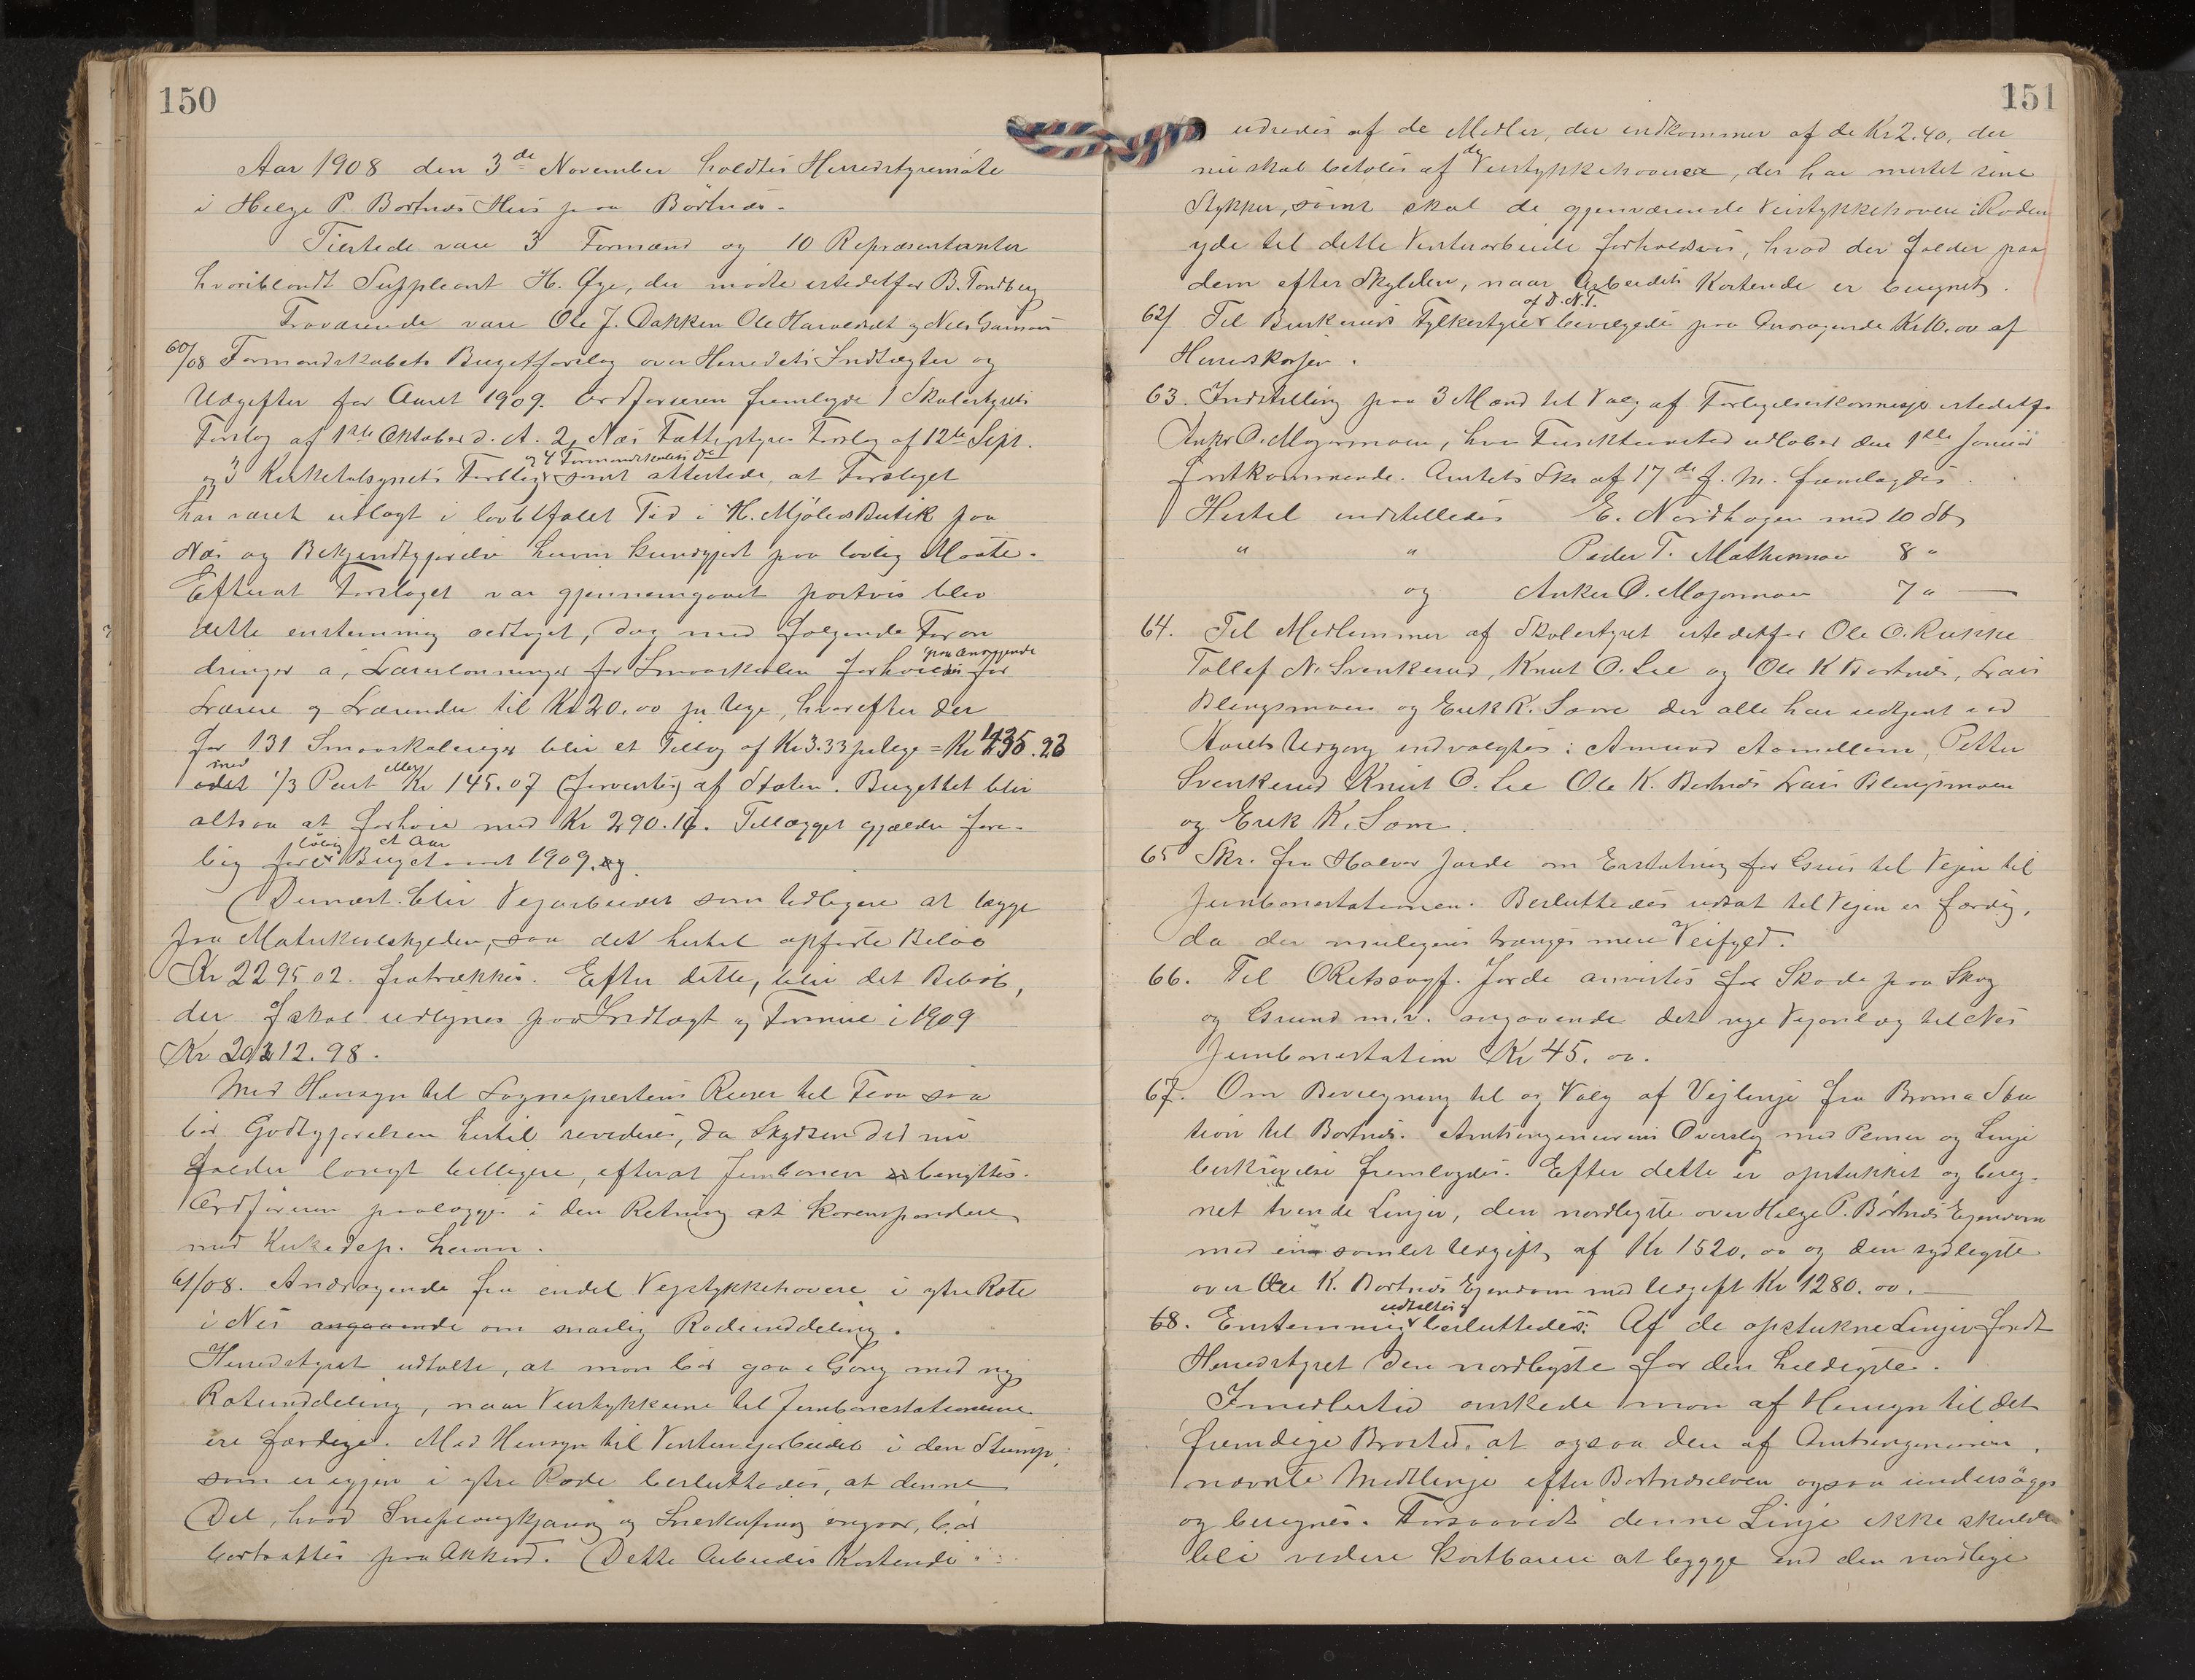 150
Aar 1908 den 3de November holdtes Herredstyremøte
i Helge P. Bortnæs Hus paa Børtnæs.
Tilstede vare 3 Formænd og 10 Repræsentanter
hvoriblandt Suppleant H. Øye, der mødte istedetfor B. Tondberg
Fraværende vare Ole J. Dakken Ole Haraldset og Nils
60/08 Formandskabets Bugetforslag over Herredets Indtægter og
Udgifter for Aaret 1909. Ordføreren fremlagde 1 Skolestyrets
Forslag af 1ste Oktober d. A. 2, Nes Fattigstyres Forslag af 12te Sept.
og 4 Formandskabets do
og 3 Kirketilsynets Forslag samt attestede, at Forslaget
har været udlagt i lovbefalet Tid i H. Mjøless Butik paa
Nes og Bekjendtgjørelse herom kundgjort paa lovlig Maate.
Efterat Forslaget var gjennemgaaet postvis blev
dette enstemmig vedtaget, dog med følgende Foran
paa Andragende
dringer a, Lærerlønninger for Smaaskolen forhøies for
Lærere og Lærerinder til Kr 20.00 pr Uge, hvorefter der
for 131 Smaaskoleuger blir et Tillæg af Kr 3.33 pr Uge = Kr 435.23
med eller
1/3 Part Kr 145.07 (forventes) af Staten. Bugettet blir
altsaa at forhøie med Kr 290.16. Tillægget gjælder fore-
løbig et Aar
big for Bugetaaret 1909.
Dernæst blir Vejarbeidet som tidligere at lægge
paa Matrikulskylden, saa det hertil opførte Beløb
Kr 2295 02. fratrækkes. Efter dette, blir det Beløb,
der skal udlignes paa Indtægt og Formue i 1909
Kr 20212.98.
Med Hensyn til Sognepræstens Reiser til Flaa saa
bør Godtgjørelsen hertil revideres, da Skydsen did nu
falder langt billigere, efterat Jernbanen benyttes.
Ordføreren paalægges i den Retning at korrespondere
med Kirkedep. herom.
61/08. Andragende fra endel Vejstykkehavere i ytre Rote
i Nes angaaende om snarlig Rodeinddeling.
Herredstyret udtalte, at man bør gaa i Gang med ny
Roteinddeling, naar Veistykkerne til Jernbanestationerne
ere færdige. Med Hensyn til Vintervejarbeidet i den Stump,
som er igjen i ytre Rode besluttedes, at denne
Del, hvad Sneplougkjøring og Sneskufning angaar, bør
bortsættes paa Akkord. Dette Arbeides Kostende
151
udredes af de Midler, der indkommer af de Kr 2.40, der
de
nu skal betales af Veistykkehavere, der har mistet sine
Stykker, samt skal de gjenværende Veistykkehavere i Roden
yde til dette Vinterarbeide forholdsvis, hvad der falder paa
dem efter Skylden, naar Arbeidets Kostende er beregnet.
af D. N. T.
62/ Til Buskeruds Fylkestyre bevilgedes paa Andragende Kr 10.00 af
Herredskassen.
63. Indstilling paa 3 Mænd til Valg af Forligelseskommissær istedetfor
Anker O. Mogermoen, hvis Funktionstid udløber den 1ste Januar
førstkommende. Amtets Skr af 17de f. M. fremlagdes.
Hertil indstilledes E. Nordhagen med 10 St,
" " Peder T. Mathismoen 8 "
og Anker O. Mogermoen 7 " —
64. Til Medlemmer af Skolestyret istedetfor Ole O. Rukke
Tollef N. Svenkerud, Knut O. Lie og Ole K Bortnæs, Lars
Blengsmoen og Erik K. Sorre der alle har udtjent ved
Aarets Udgang indvalgtes: Amund Aamellem, Petter
Svenkerud Knut O. Lie Ole K. Bortnæs Lars Blengsmoen
og Erik K. Sorre.
65 Skr. fra Halvor Jorde om Erstatning for Grus til Vejen til
Jernbanestationen. Besluttedes udsat til Vejen er færdig,
da der muligens trænges mere Veifyld.
66. Til ORetssagf. Jorde anvistes for Skade paa Skog
og Grund m.v. angaaende det nye Vejanlæg til Nes
Jernbanestation Kr 45.00.
67. Om Bevilgning til og Valg af Vejlinje fra Broma Sta
tion til Bortnes. Amtsingeniørens Overslag med Planer og Linje
beskrivelse fremlagdes. Efter dette er opstukket og bereg-
net tvende Linjer, den nordligste over Helge P. Børtnes Ejendom
med en samlet Udgift af Kr 1520.00 og den sydligste
over Ole K. Bortnes Ejendom med Udgift Kr 1280.00. —
udtaltes og
68. Enstemmig besluttedes: Af de opstukne Linjer fandt
Herredstyret den nordligste for den heldigste.
Imidlertid ønskede man af Hensyn til det
fremtidige Brosted, at ogsaa den af Amtsingeniøren
nævnte Midtlinje efter Bortnæselven ogsaa undersøges
og beregnes. Forsaavidt denne Linje ikke skulde
bli videre kostbarere at bygge end den nordlige